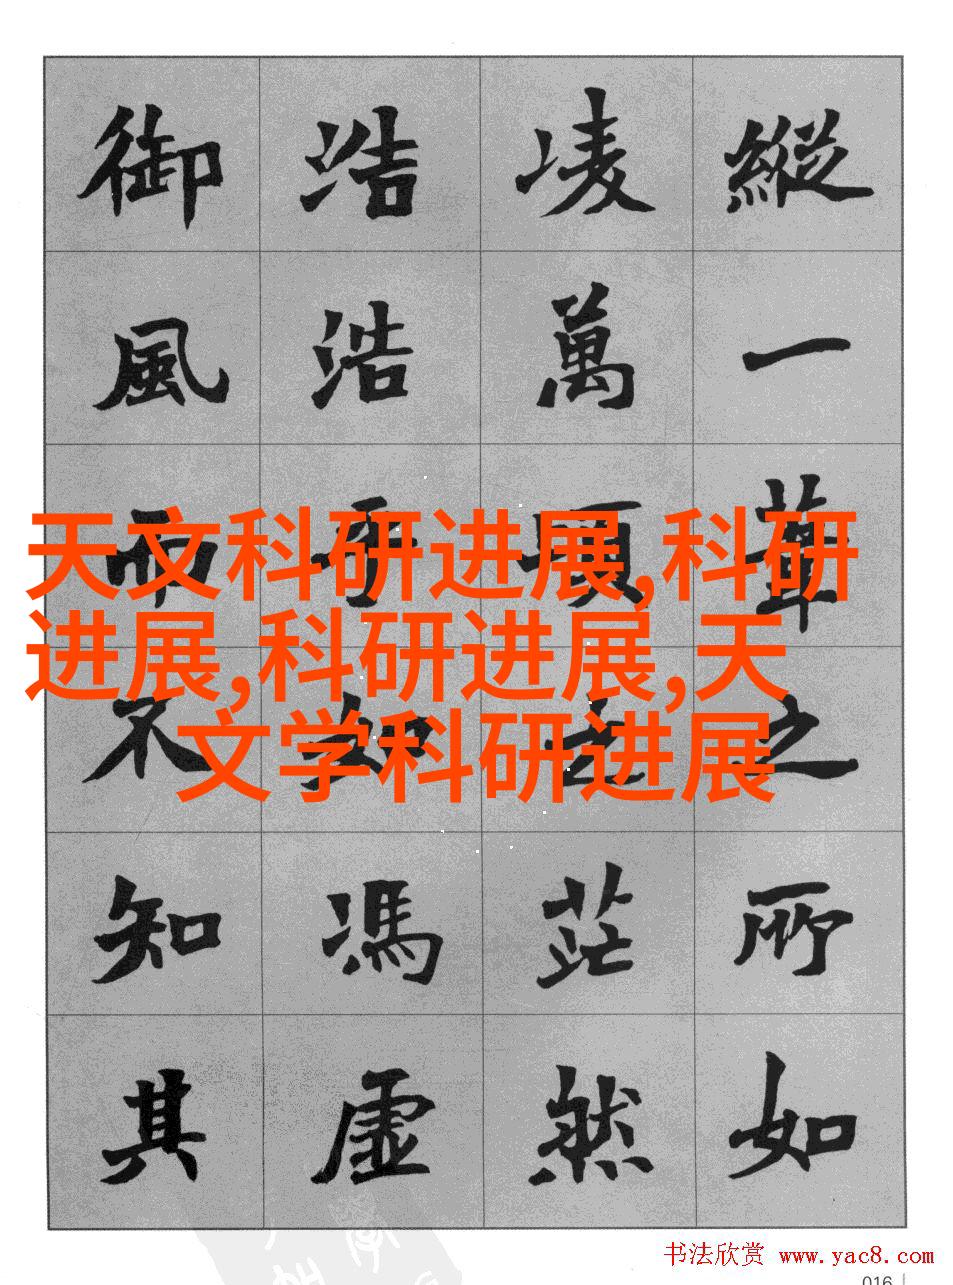 縱一葦之所如
凌萬頃之茫然
浩浩乎如馮虛
御風而不知其
天文科研进展,科研
进展,科研进展,天
文学科研进展
书法欣赏 www.yac8.com
016